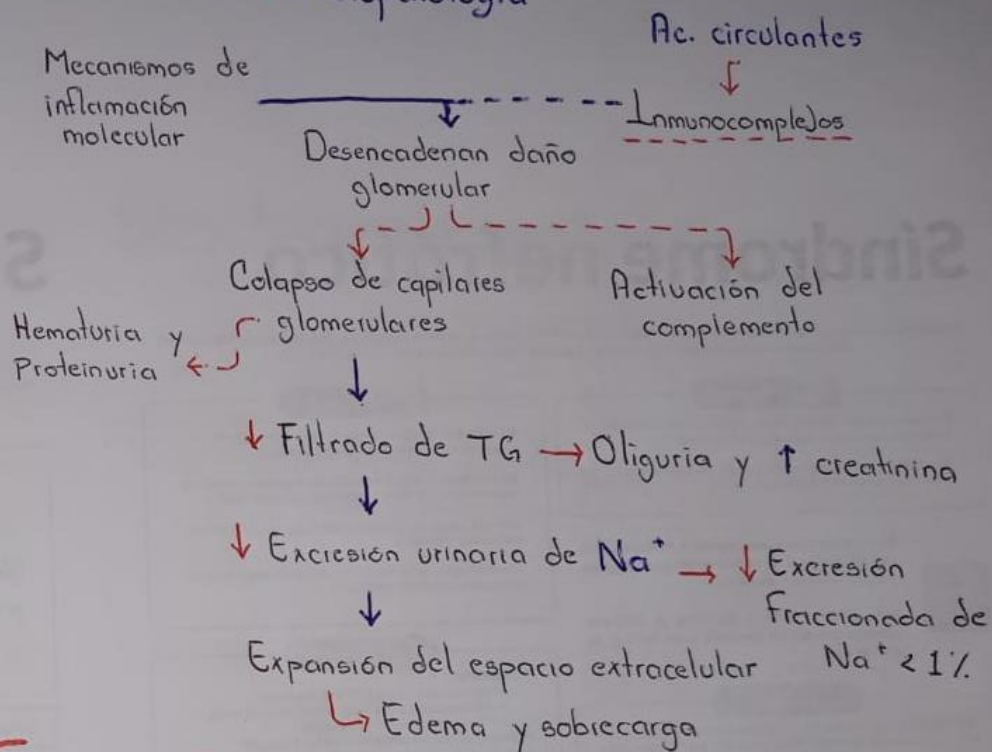 Fisiopatología
Ac. circulantes
Mecanismos de
inflamación
molecular
Inmunocomplejos
Desencadenan daño
glomerular
Colapso de capilares
glomerulares
Activación del
complemento
Hematuria y
Proteinuria
↓ Filtrado de TG → Oliguria y ↑ creatinina
↓ Excresión urinaria de Na⁺ → ↓ Excresión
Fraccionada de
Na⁺ < 1%
Expansión del espacio extracelular
Edema y sobrecarga